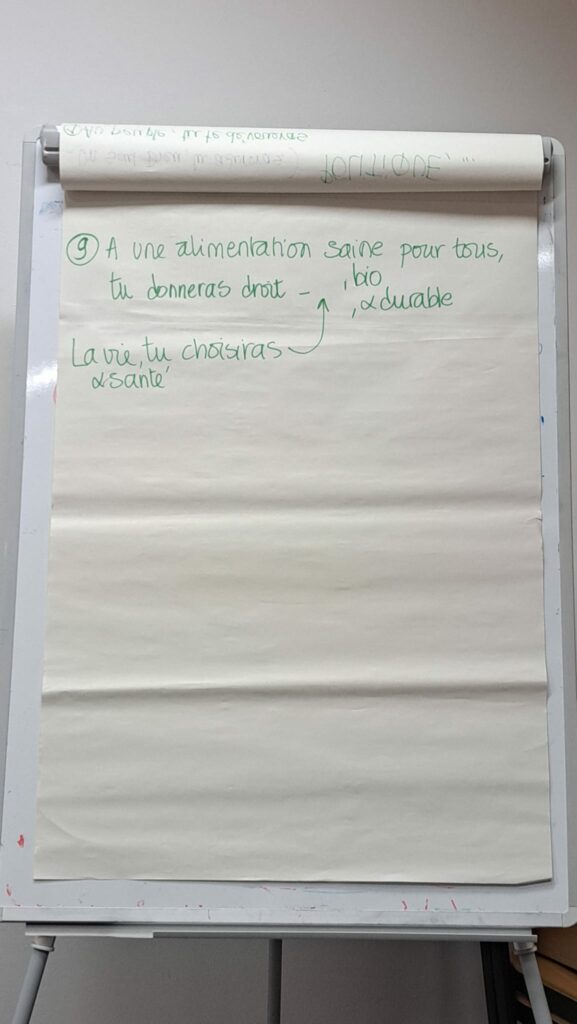 ⑨ A une alimentation saine pour tous,
tu donneras droit - , bio
, & durable
La vie, tu choisiras
& santé